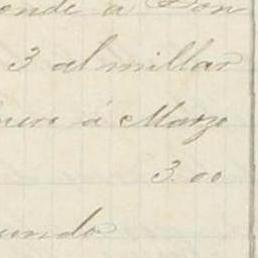 onde a Don
3 al millar
nero á Marzo
3.00
undo